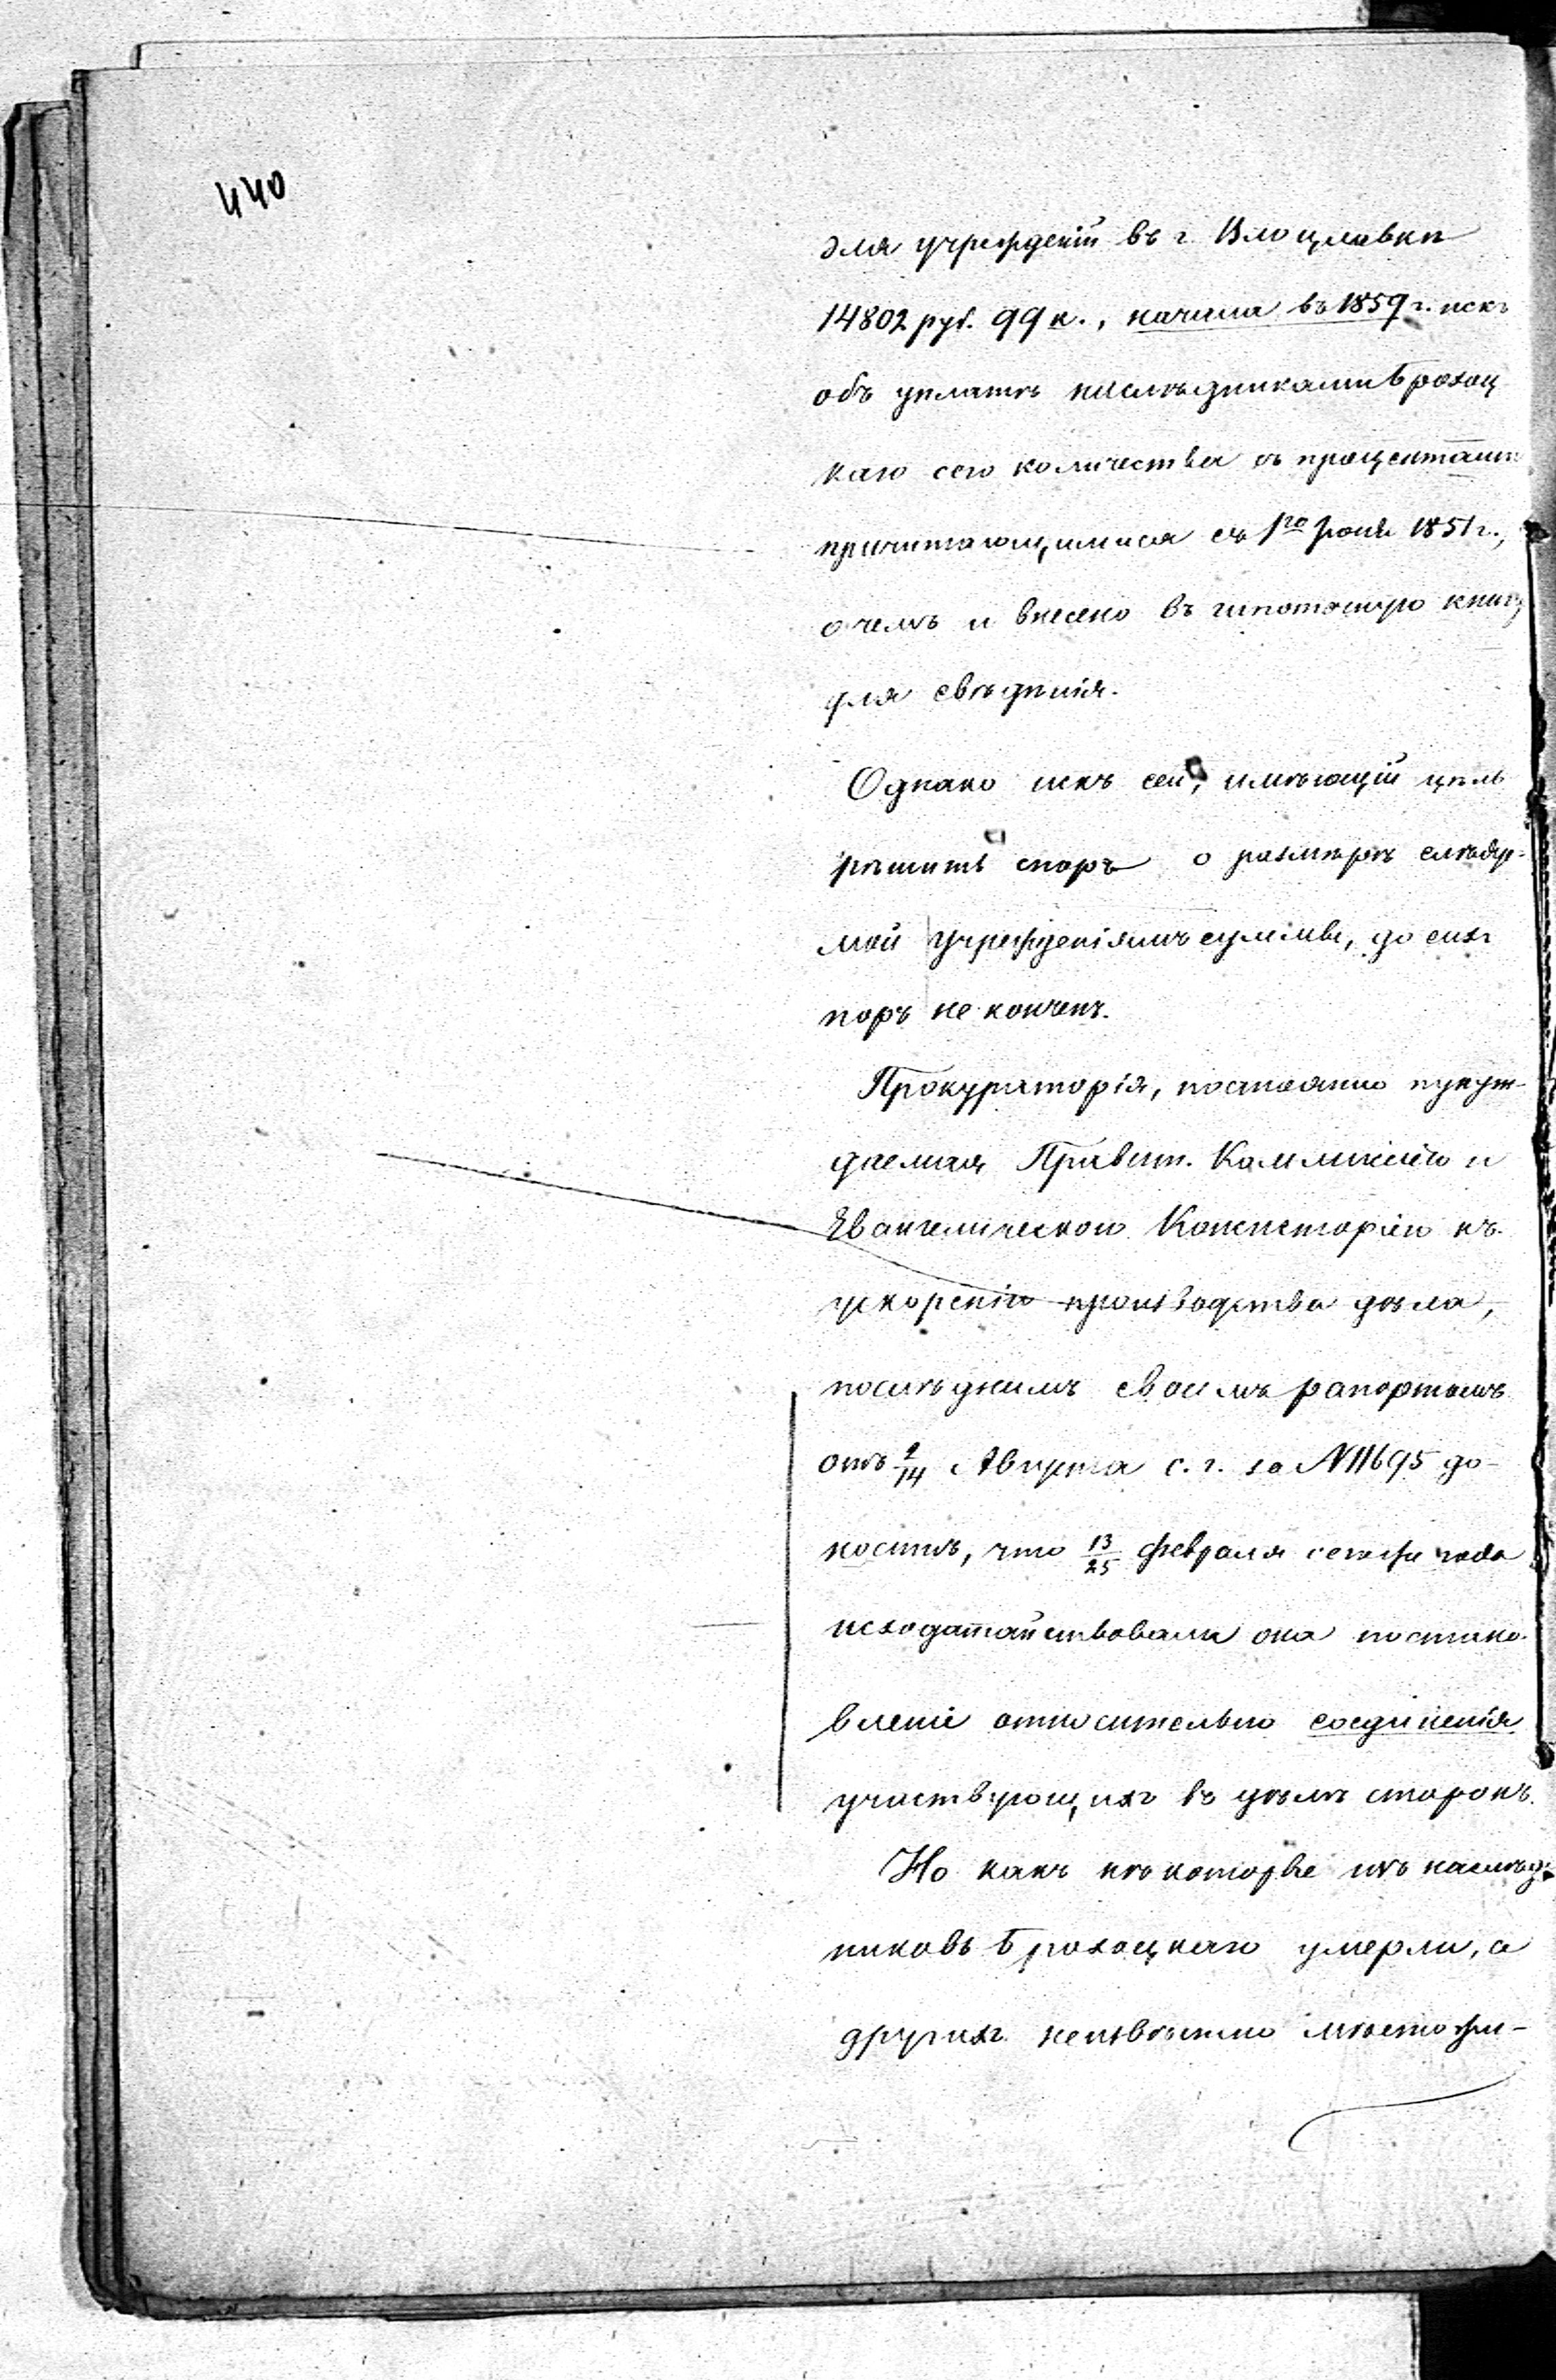 440
для учрежденій въ г. Влоцлавкѣ
14802 руб. 99 к., начала въ 1859 г. искъ
объ уплатѣ наслѣдниками Брохоц
каго сего количества съ процентами
причитающимися съ 1го Іюня 1851 г.,
о чемъ и внесено въ ипотечную книгу
для свѣдѣнія.
Однако искъ сей, имѣющій цѣль
рѣшить споръ о размѣрѣ слѣдуе-
мой учрежденіямъ суммы, до сихъ
поръ не конченъ.
Прокураторія, постоянно пужд-
даемая Правит. Коммисіею и
Евангелическою Консисторіею къ
ускоренію производства дѣла,
послѣднимъ своимъ рапортомъ
отъ 2/14 Августа с. г. за N 11695 до-
носитъ, что 13/25 Февраля сего же года
исходатайствовала она постано-
вленіе относительно соединенія
участвующихъ въ дѣлѣ сторонъ.
Но какъ нѣкоторые изъ наслѣд-
никовъ Брохоцкаго умерли, а
другихъ неизвѣстно мѣстожи-